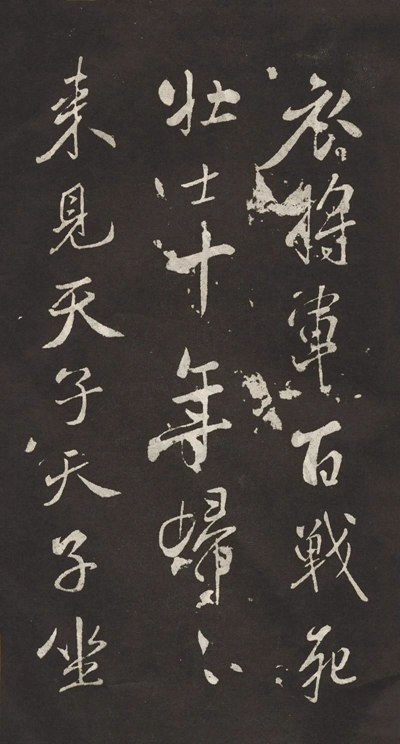 衣將軍百戰死
壯士十年歸〻
來見天子天子坐